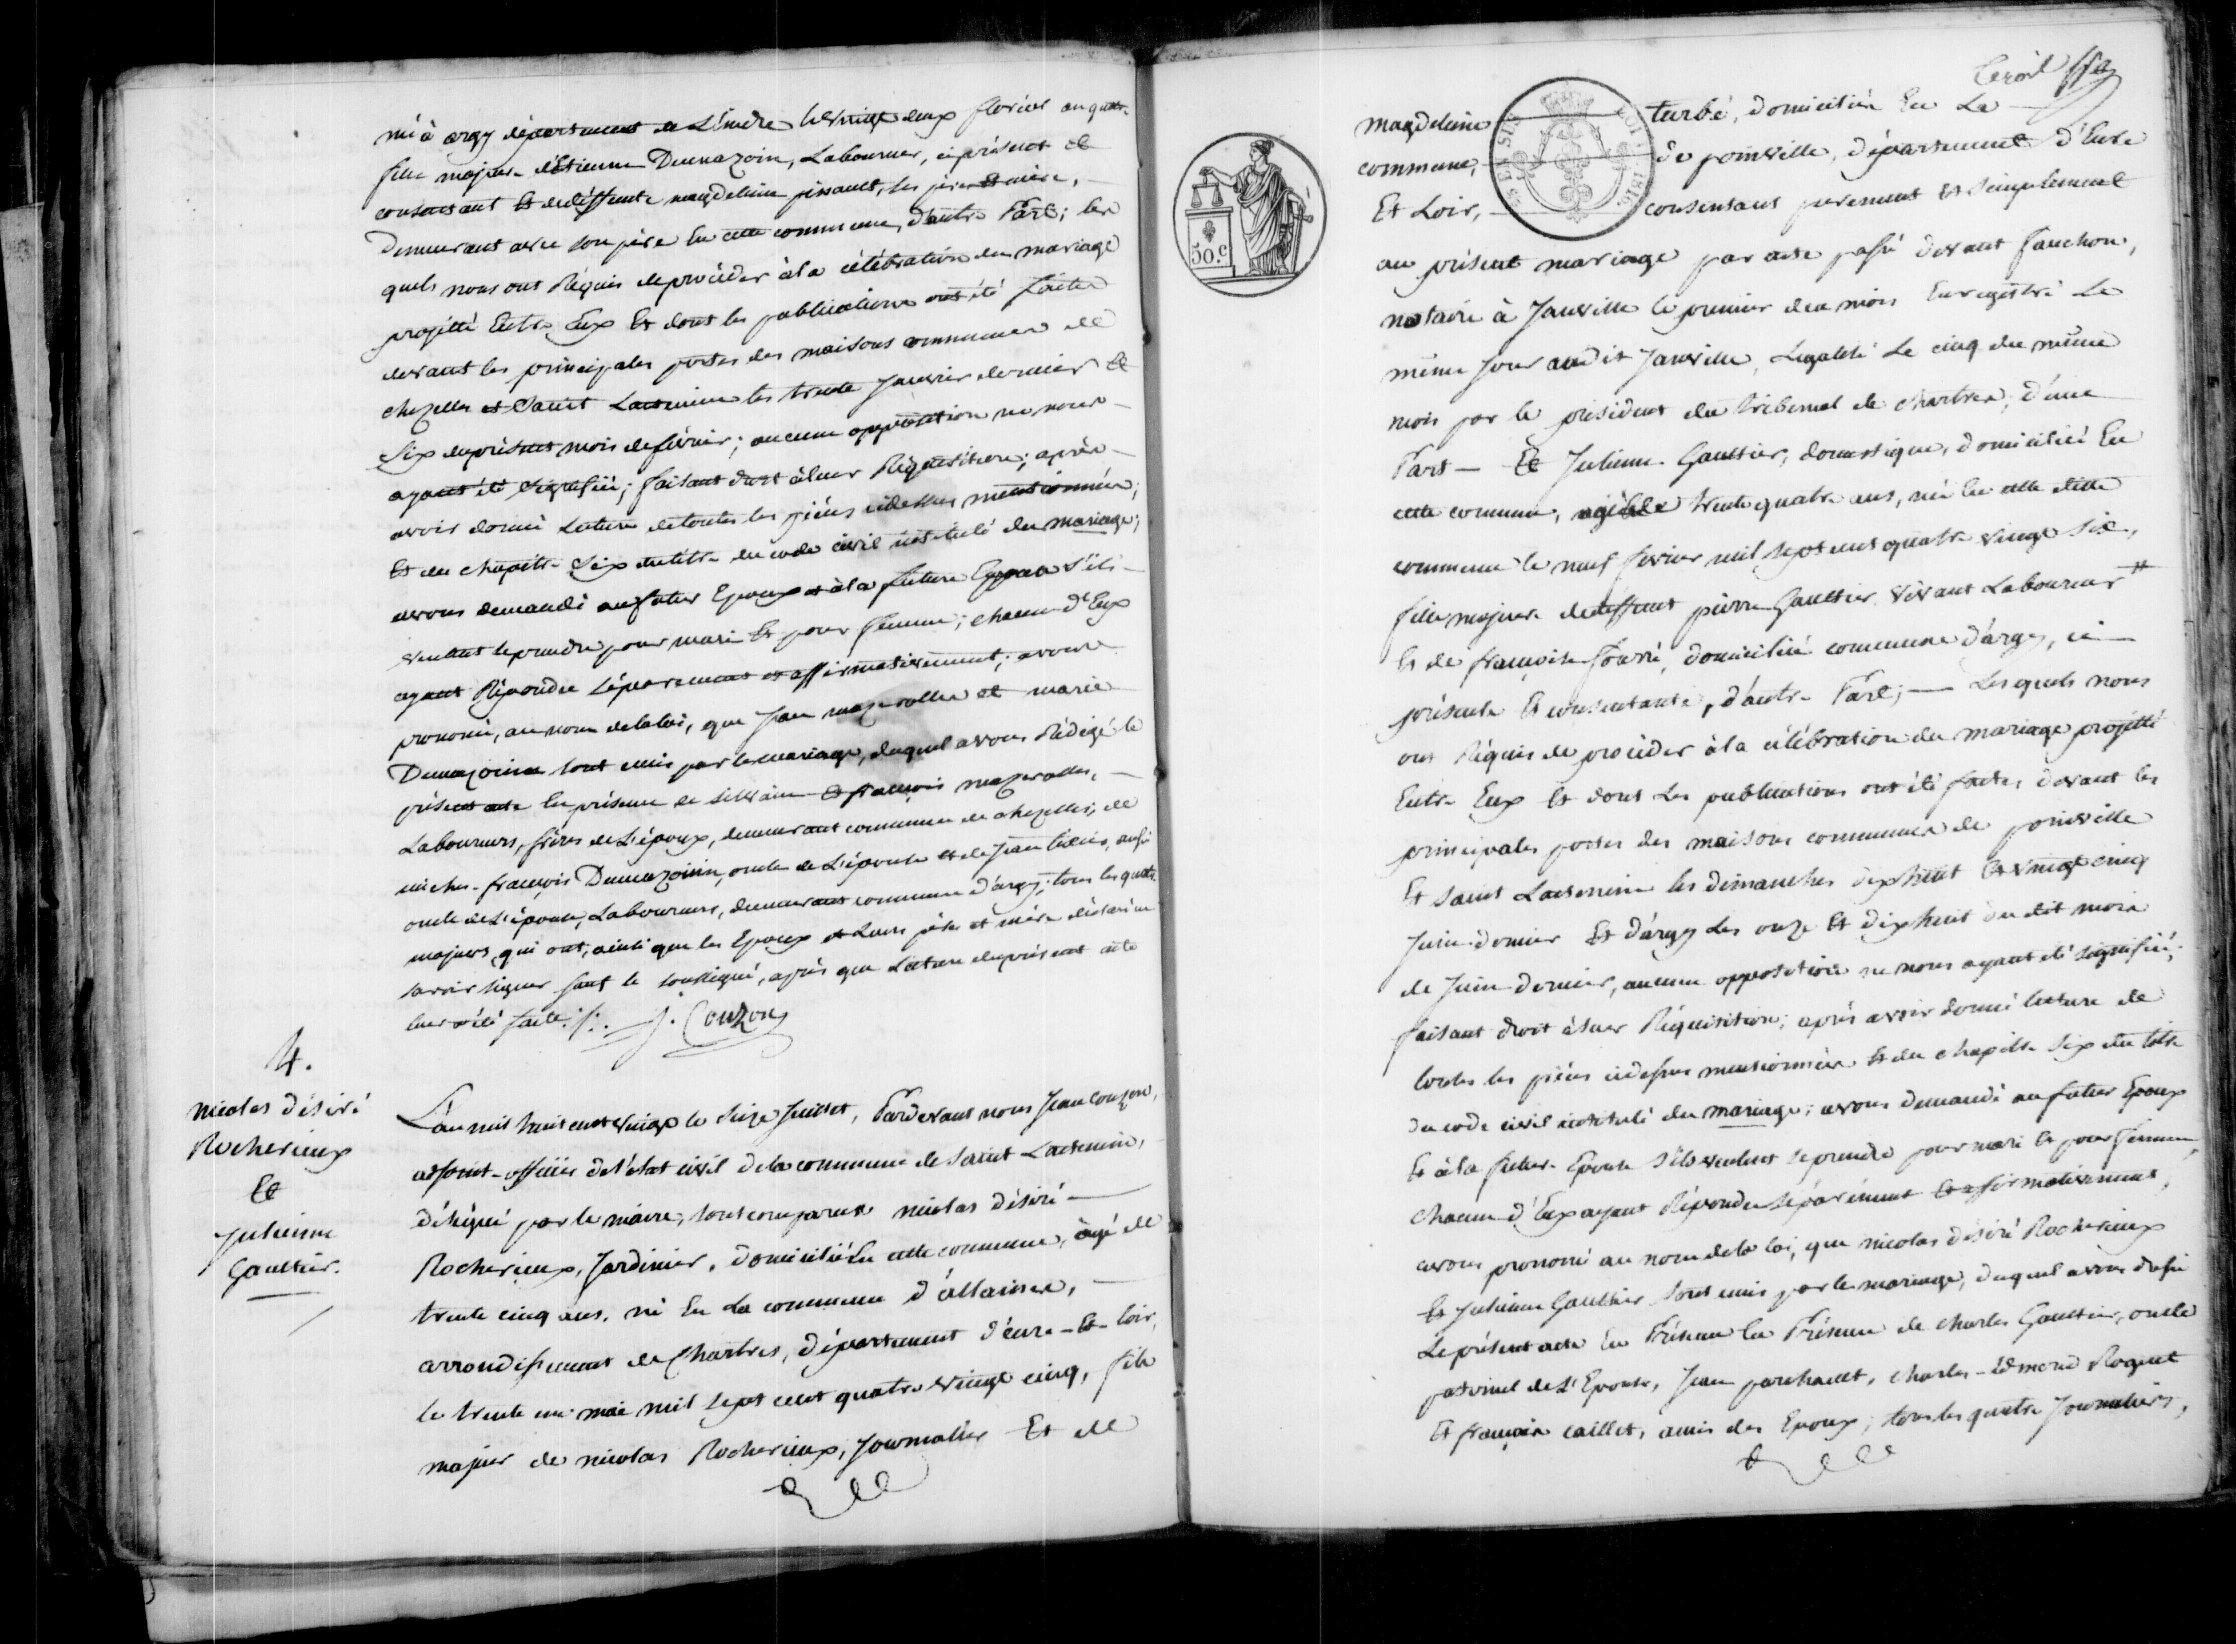 né à argy département de L'indre le vingt deux floréal an quatre
fille majeure d'Etienne Dumazoin, Laboureur, ci présent et
consentant et de deffunte magdeleine pinault, ses père et mère,
demeurant avec son père En cette commune, d'autre Part; les
quels nous ont Réquis de procéder à la célébration du mariage
projetté Entre Eux Et dont les publications ont été faites
devant les principales portes des maisons communes de
chezelles et Saint Lactencin les trente Janvier dernier et
Six du présent mois de février; aucune opposition ne nous
ayant été signifiée; faisant droit à leur Réquisition; après
avoir donné Lecture de toutes les pièces ci dessus mentionnées;
Et du chapitre Six du titre du code civil intitulé du mariage;
avons demandé au futur Epoux et à la future Epouse s'ils
veulent se prendre pour mari Et pour femme; chacun d'Eux
ayant Répondu séparement et affirmativement; avons
prononcé, au nom de la loi, que Jean mazerolles et marie
Dumazoin sont unis par le mariage, duquel avons Rédigé le
présent acte En présence de silvain Et françois mazerolles,
Laboureurs, frères de L'époux, demeurant commune de chezelles; de
michel françois Dumazoin, oncle de L'épouse et de Jean aussi
oncle de L'épouse, Laboureurs, demeurant commune d'argy; tous les quatre
majeurs, qui ont, ainsi que les Epoux et Leurs père et mère déclaré ne
savoir signer sauf le soussigné, après que Lecture du présent acte
leur a été faite ./. J. Couzon
4.
nicolas désiré
Rocherieux
Et
Julienne
Gaultier.
L'an mil huit cent vingt le Seize Juillet, Pardevant nous Jean Couzon,
adjoint-officier de l'état civil de la commune de Saint Lactencin,
délégué par le maire, sont comparus nicolas désiré
Rocherieux, Jardinier, domicilié En cette commune, âgé de
trente cinq ans, né En La commune d'allaines,
arrondissement de Chartres, département d'eure-Et-loir,
le trente un mai mil sept cent quatre vingt cinq, fils
majeur de nicolas Rocherieux, Journalier Et de
magdeleine turbé, domiciliés En La
commune, de poinville, département d'Eure
Et Loir, consentans purement et simplement
au présent mariage par acte passé devant fauchon,
notaire à Janville le premier de ce mois Enregistré Le
même Jour audit Janville, Légalisé Le cinq du même
mois par le président du tribunal de chartres, d'une
Part — Et Julienne Gaultier, domestique, domiciliée En
cette commune, agée de trente quatre ans, née En cette dite
commune le neuf février mil sept cent quatre vingt Six,
fille majeure de deffunt pierre Gaultier vivant Laboureur
Et de françoise fourré, domiciliée commune d'argy, ci
présente Et consentante, d'autre Part; — Lesquels nous
ont Réquis de procéder à la célébration du mariage projetté
Entre Eux Et dont Les publications ont été faites devant les
principales portes des maisons communes de poinville
Et Saint Lactencin les dimanches dix huit Et vingt cinq
Juin dernier Et d'argy Les onze Et dix huit du dit mois
de Juin dernier, aucune opposition ne nous ayant été signifiée;
faisant droit à leur Réquisition; après avoir donné lecture de
toutes les pièces ci dessus mentionnées Et du chapitre Six du titre
du code civil intitulé du mariage; avons demandé au futur Epoux
Et à la future Epouse s'ils veulent se prendre pour mari Et pour femme;
chacun d'Eux ayant Répondu séparément Et affirmativement,
avons prononcé au nom de la loi, que nicolas désiré Rocherieux
Et Julienne Gaultier sont unis par le mariage, duquel avons dressé
Le présent acte En Présence En Présence de charles Gaultier, oncle
paternel de L'Epouse, Jean parchault, charles-édmond Roguet
Et françois caillet, amis des Epoux; tous les quatre Journaliers,
50.c